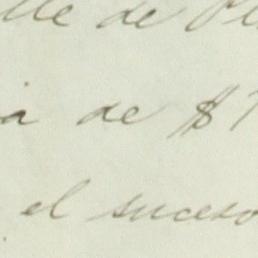 lle de
a de $
el suceso